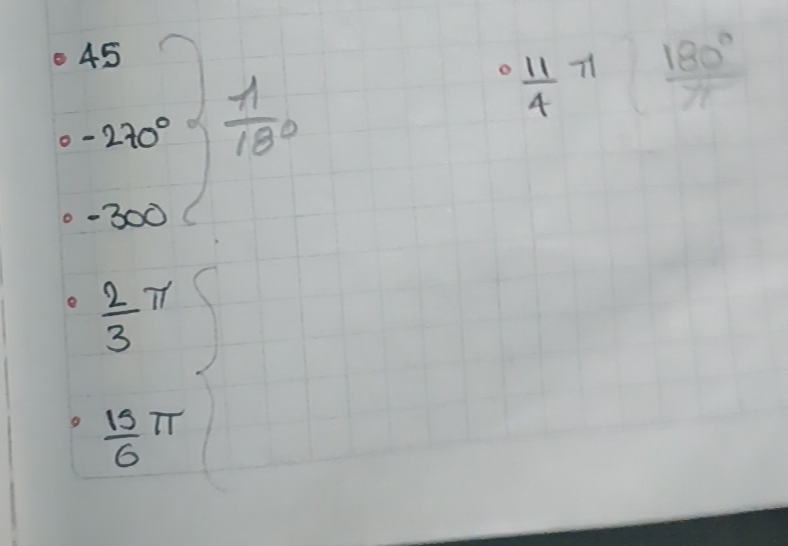 • 45
• -270°
• -300
π/180
• 2/3 π
• 15/6 π
• 11/4 π
180°/π